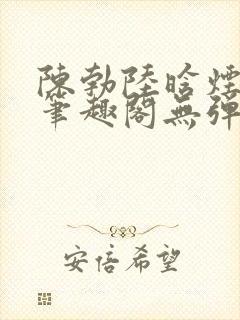 陳勃陸晗煙
筆趣閣無彈
安倍希望